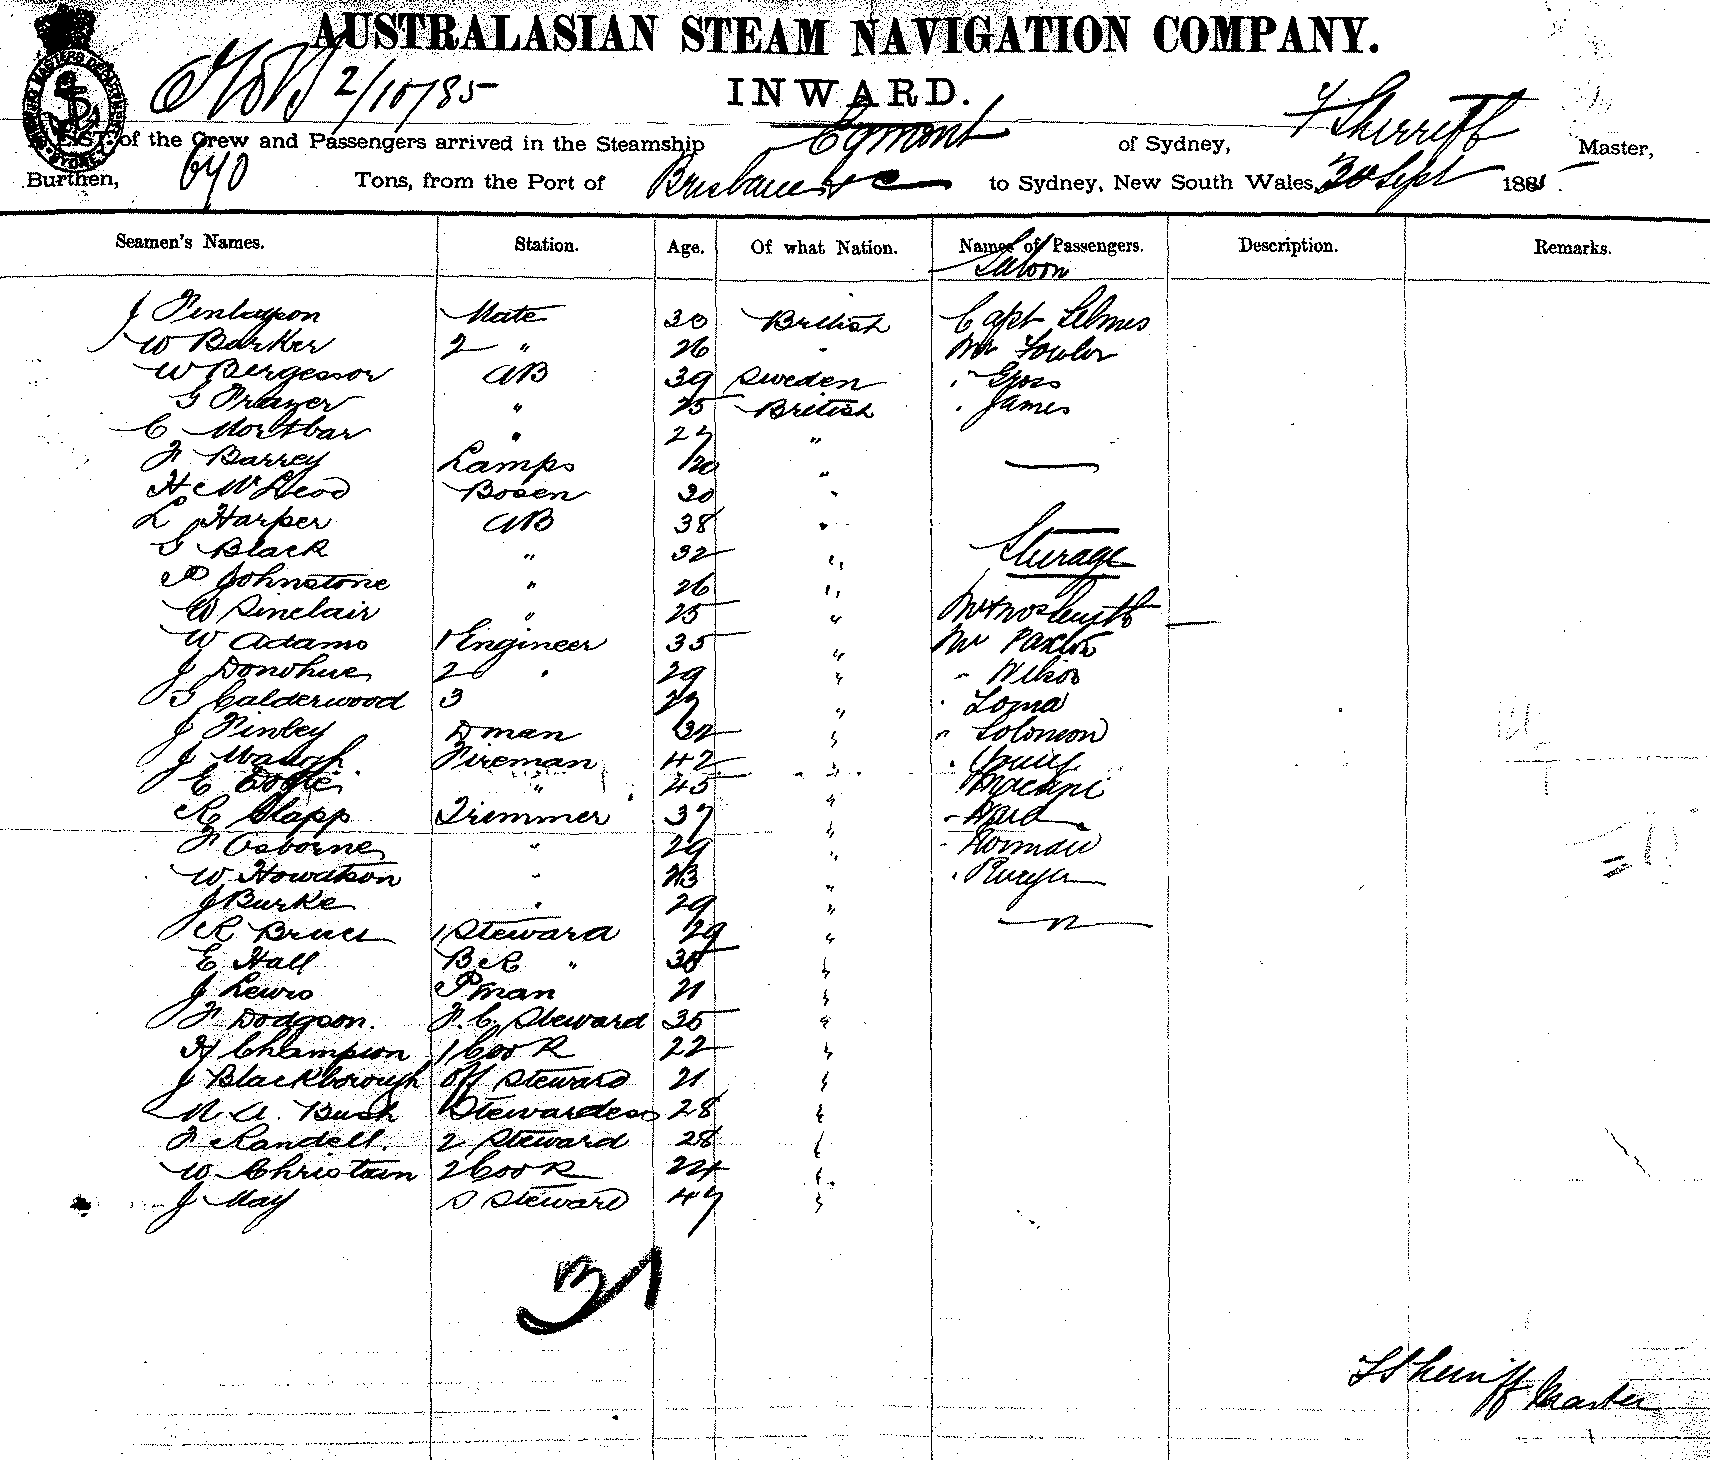 AUSTRALASIAN STEAM NAVIGATION COMPANY.
2/10/85 INWARD.
LIST of the Crew and Passengers arrived in the Steamship Egmont of Sydney, F Sherriff Master,
Burthen, 640 Tons, from the Port of Brisbane to Sydney, New South Wales, 30 Sept 1885.
Seamen's Names. Station. Age. Of what Nation. Names of Passengers. Description. Remarks.
Saloon
J Finlayson Mate 30 British Capt Selmes
W Barker 2 " 26 " Mr Fowler
W Bergessor AB 39 Sweden " Gross
G Frazer " 25 British " James
C Mortbar " 27 "
F Barrey Lamps 20 "
H McLeod Bosen 30 "
L Harper AB 38 "
G Black " 32 " Sturage
P Johnstone " 26 "
W Sinclair " 25 " Mr & Mrs Smyth
W Adams 1 Engineer 35 " Mr Paxton
J Donohue 2 " 29 " " Wilson
T Calderwood 3 27 " " Loma
J Finley D man 32 " " Solomon
J Waugh Fireman 42 "
E Eddie " 45 "
R Clapp Trimmer 37 " " Ward
F Osborne " 29 " " Norman
W Howatson " 23 "
J Burke " 29 "
R Bruce 1 Steward 29 "
E Hall B R " 38 "
J Lewis P man 21 "
F Dodgson. F. C. Steward 35 "
H Champion 1 Cook 22 "
J Blackborough Off Steward 21 "
M A. Bush Stewardess 28 "
F Randell. 2 Steward 28 "
W Christain 2 Cook 24 "
J May S Steward 47 "
31
F Sherriff
Master